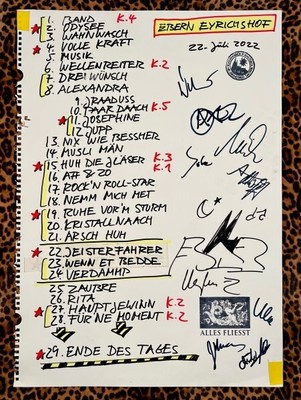 EBERN EYRICHSHOF
22. JULI 2022
1. BAND K.4
2. ODYSEE
3. WAHNWASCH
4. VOLLE KRAFT
5. MUSIK
6. WELLENREITER K.2
7. DREI WÜNSCH
8. ALEXANDRA
9. JRAADUSS
10. PAAR DAACH K.5
11. JOSEPHINE
12. JUPP
13. NIX WIE BESSHER
14. MÜSLI MÄN
15. HUH DIE JLÄSER K.3
16. AFF & ZO K.1
17. ROCK'N ROLL-STAR
18. NEMM MICH MET
19. RUHE VOR'M STURM
20. KRISTALLNAACH
21. ARSCH HUH
22. JEISTERFAHRER
23. WENN ET BEDDE
24. VERDAMMP
25. ZAUBRE
26. RITA
27. HAUPTJEWINN K.2
28. FÜR 'NE MOMENT K.2
29. ENDE DES TAGES
ALLES FLIESST